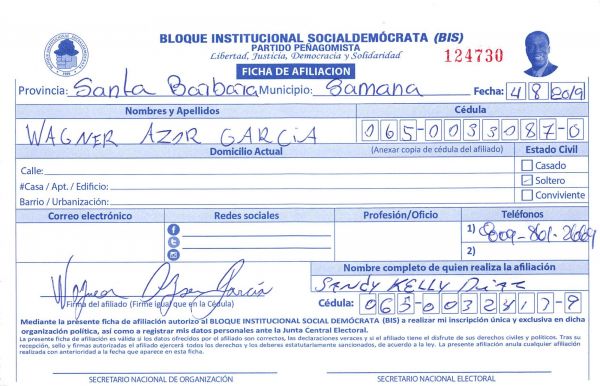 BLOQUE INSTITUCIONAL SOCIALDEMÓCRATA (BIS)
PARTIDO PEÑAGOMISTA
Libertad, Justicia, Democracia y Solidaridad
124730
FICHA DE AFILIACION
Provincia: Santa Barbara Municipio: Samana Fecha: 4/8/2019
Nombres y Apellidos Cédula
WAGNER AZOR GARCIA 065-0033087-0
Domicilio Actual (Anexar copia de cédula del afiliado) Estado Civil
Calle: Casado
#Casa / Apt. / Edificio: Soltero
Barrio / Urbanización: Conviviente
Correo electrónico Redes sociales Profesión/Oficio Teléfonos
1) 809-801-2669
2)
Nombre completo de quien realiza la afiliación
SANDY KELLY DIAZ
Firma del afiliado (Firme igual que en la Cédula) Cédula: 065-0032417-9
Mediante la presente ficha de afiliado autorizo al BLOQUE INSTITUCIONAL SOCIAL DEMÓCRATA (BIS) a realizar mi inscripción única y exclusiva en dicha
organización política, así como a registrar mis datos personales ante la Junta Central Electoral.
La presente ficha de afiliación es válida si los datos ofrecidos por el afiliado son correctos, las declaraciones veraces y si el afiliado tiene el disfrute de sus derechos civiles y políticos. Tras su
recepción, sello y firmas autorizadas el afiliado ejercerá todos los derechos y los deberes estatutariamente sancionados, de acuerdo a la ley. La presente afiliación anula cualquier afiliación
realizada con anterioridad a la fecha que aparece en esta ficha.
SECRETARIO NACIONAL DE ORGANIZACIÓN SECRETARIO NACIONAL ELECTORAL